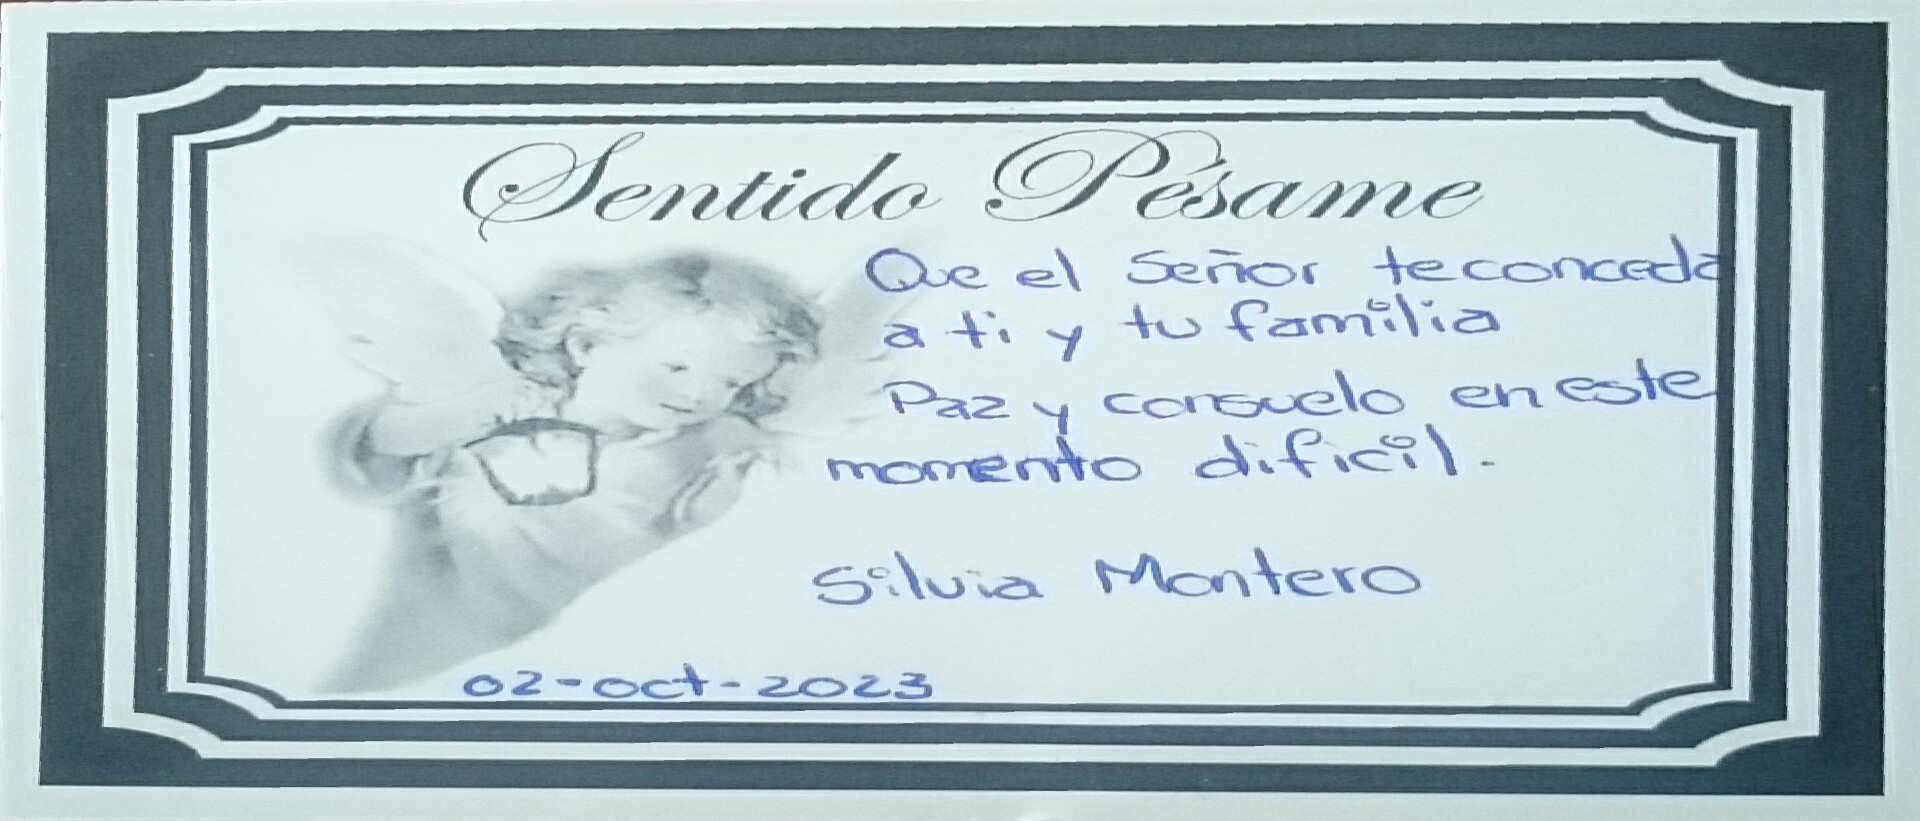 Sentido Pésame
Que el Señor te conceda
a ti y tu familia
Paz y consuelo en este
momento dificil.
Silvia Montero
02-oct-2023